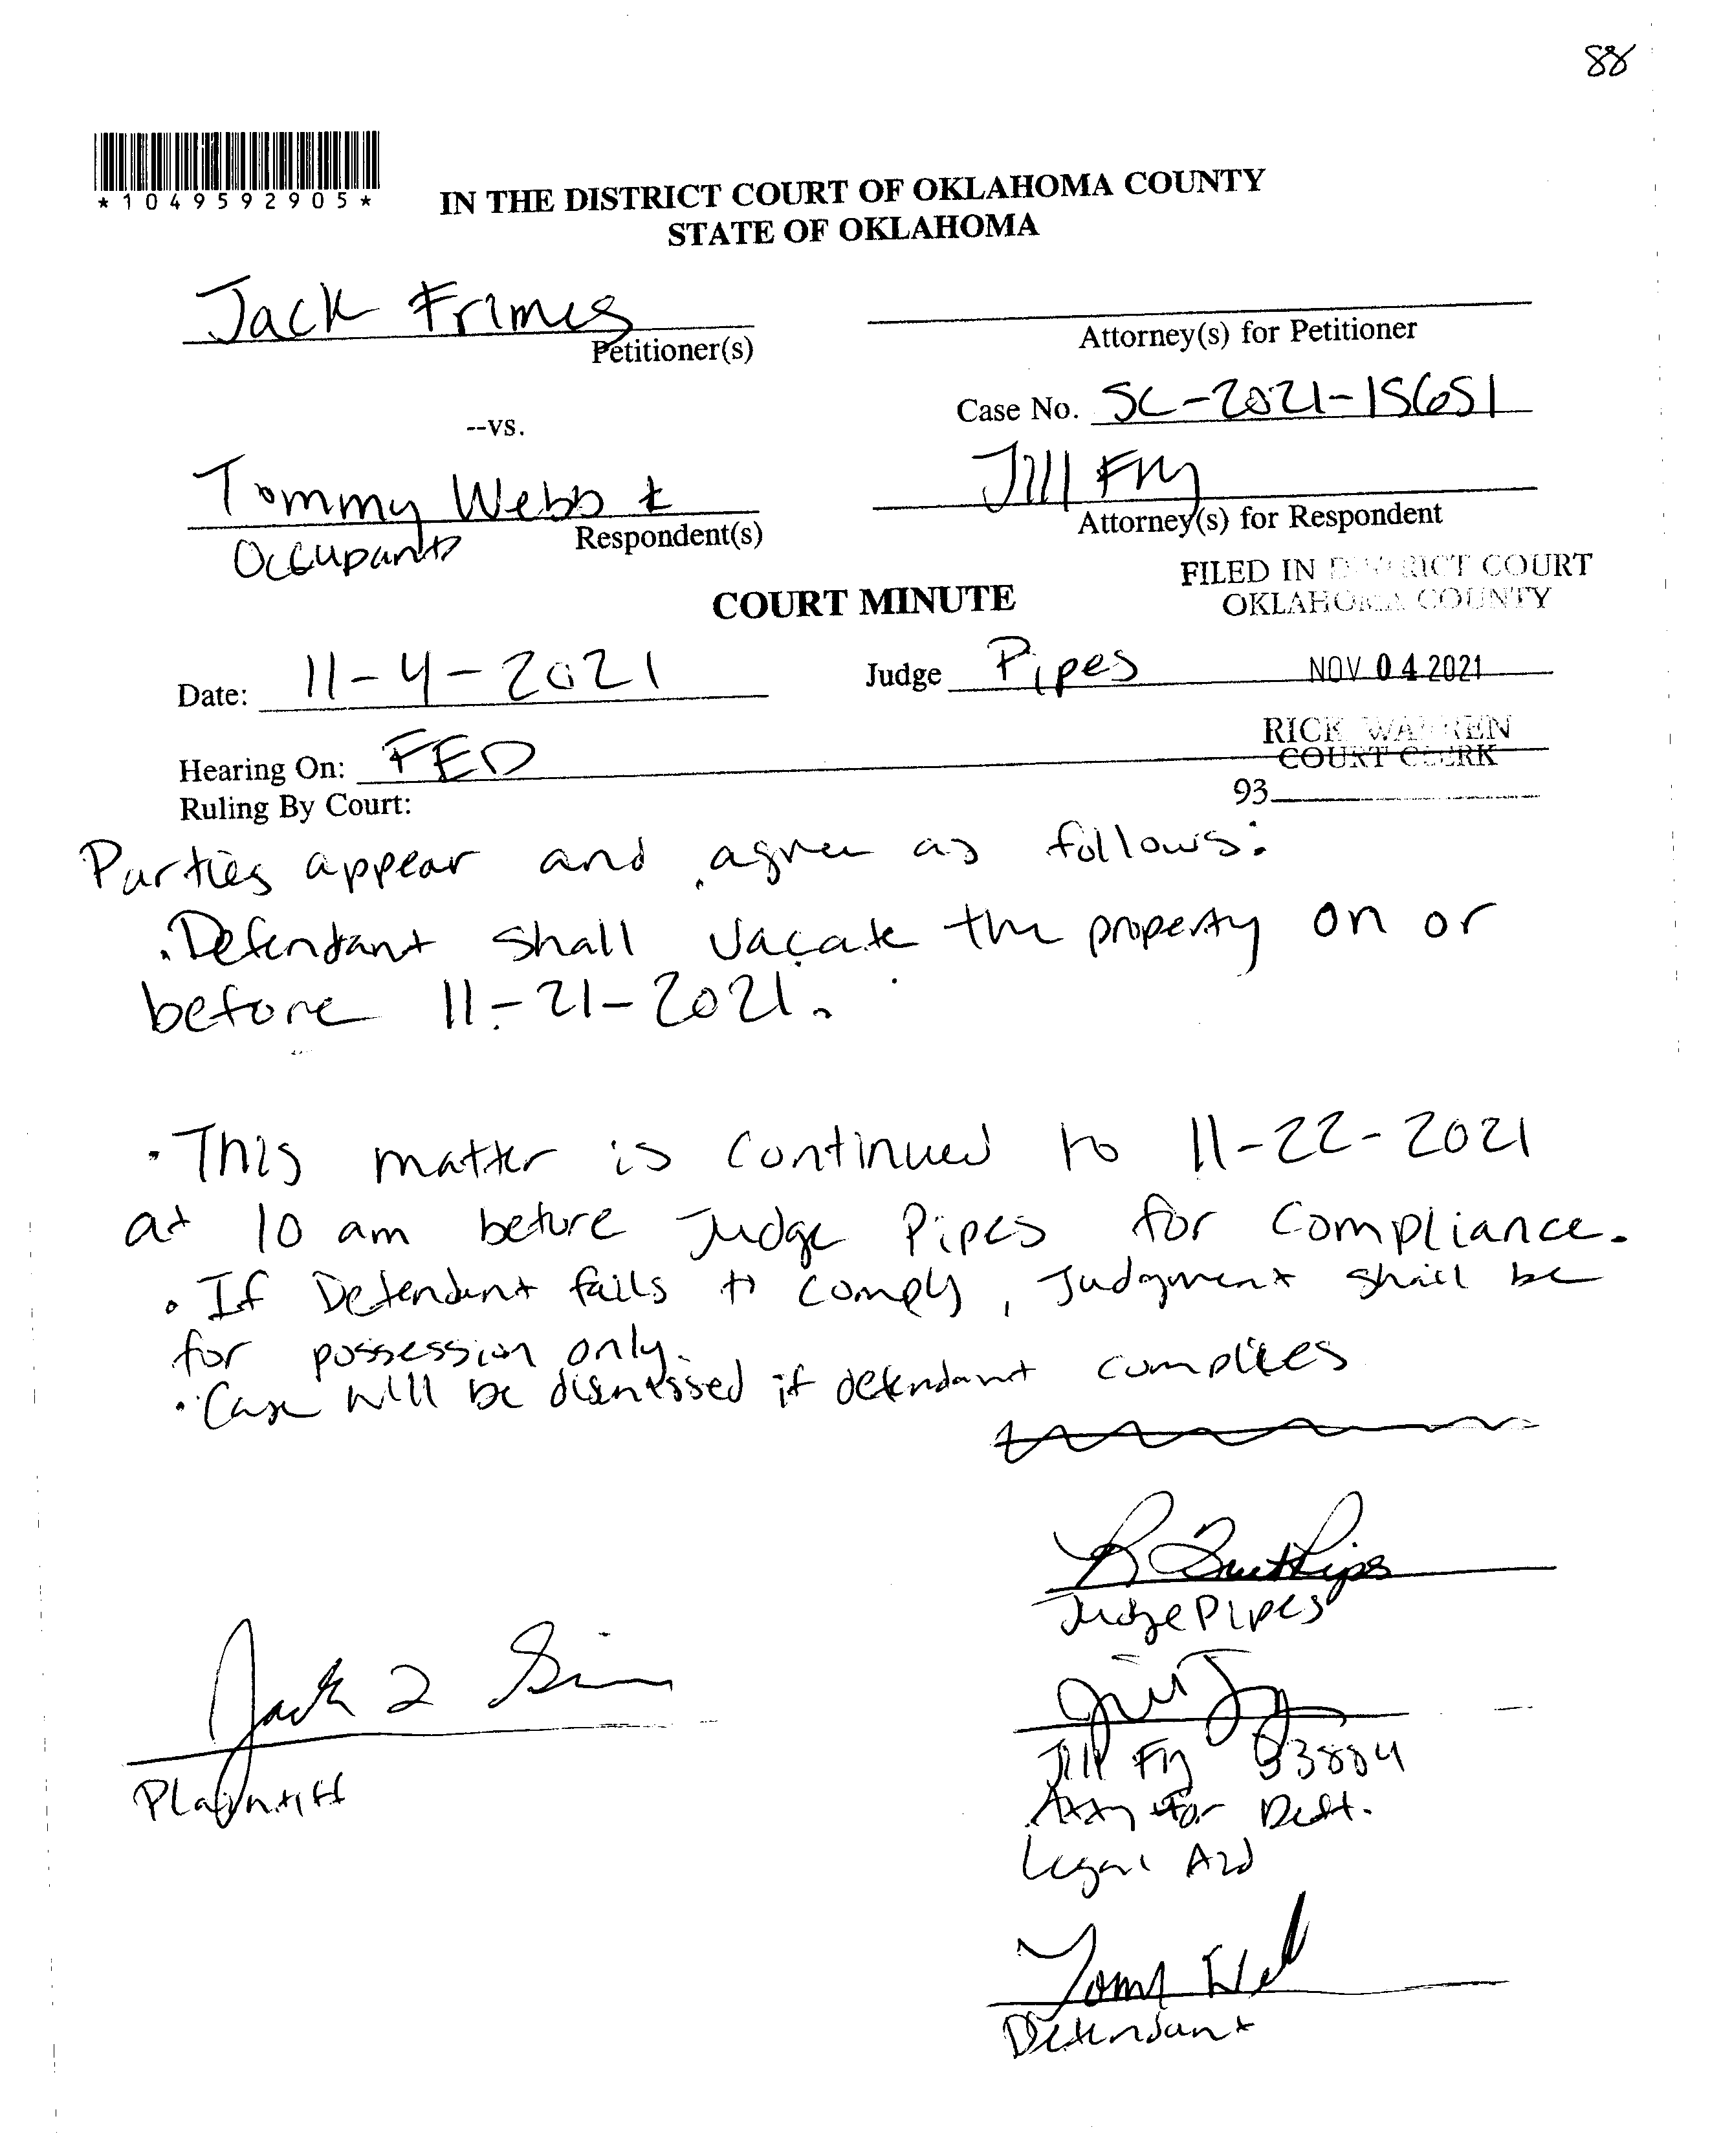 88
*1049592905*
IN THE DISTRICT COURT OF OKLAHOMA COUNTY
STATE OF OKLAHOMA
Jack Frimes
Petitioner(s)
Attorney(s) for Petitioner
--vs.
Case No. SC-2021-15651
Tommy Webb &
Respondent(s)
Occupants
Jill Fry
Attorney(s) for Respondent
COURT MINUTE
FILED IN DISTRICT COURT
OKLAHOMA COUNTY
Date: 11-4-2021
Judge Pipes
NOV 04 2021
RICK WARREN
COURT CLERK
93
Hearing On: FED
Ruling By Court:
Parties appear and agree as follows:
· Defendant shall vacate the property on or
before 11-21-2021.
· This matter is continued to 11-22-2021
at 10 am before Judge Pipes for compliance.
· If Defendant fails to comply, Judgment shall be
for possession only.
· Case will be dismissed if defendant complies
Judge Pipes
Jack
Plaintiff
Jill Fry 33884
Atty for Deft.
Legal Aid
Defendant